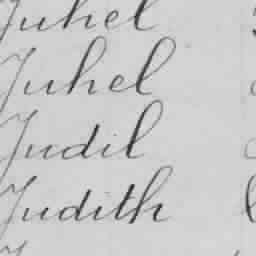 Juhel
Juhel
Judil
Judith